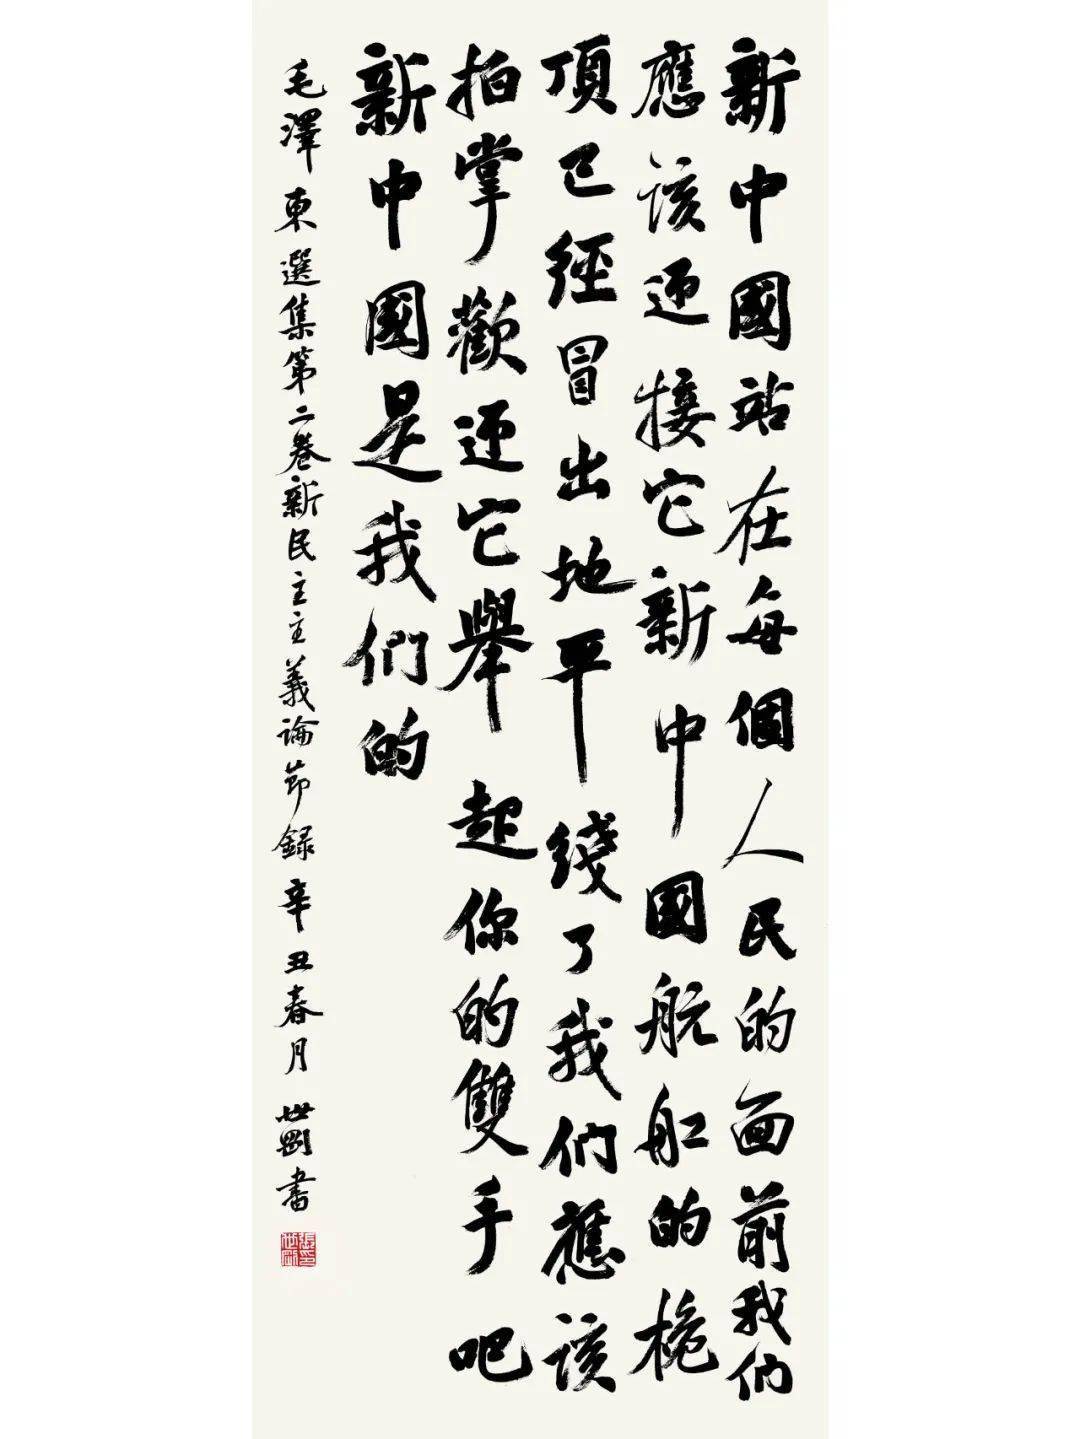 新中國站在每個人民的面前我們
應該迎接它新中國航船的桅
頂已經冒出地平綫了我們應該
拍掌歡迎它舉起你的雙手吧
新中國是我們的
毛澤東選集第二卷新民主主義論節録辛丑春月世剛書
張印世剛